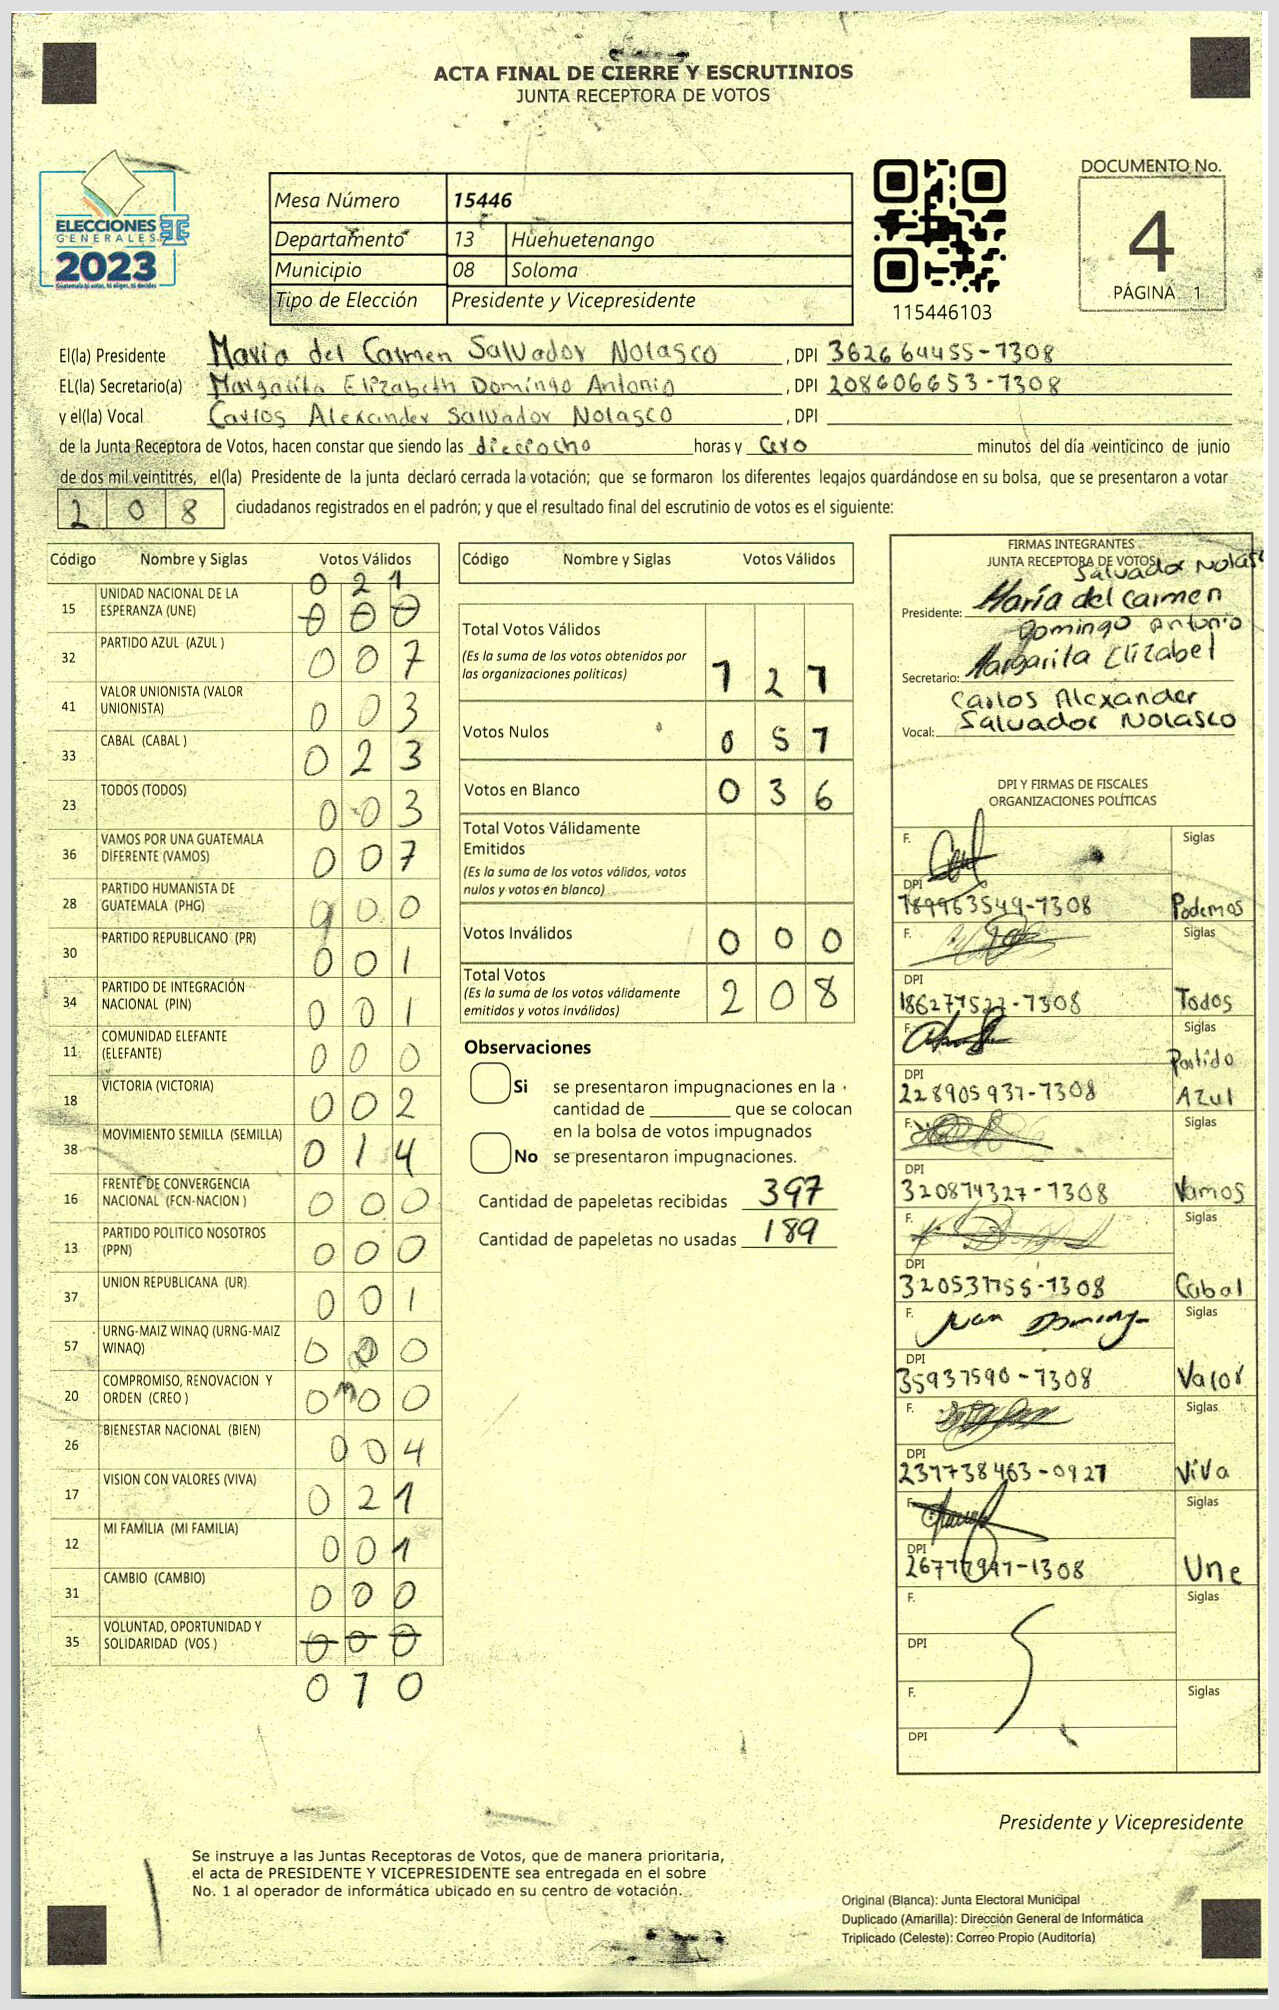 ACTA FINAL DE CIERRE Y ESCRUTINIOS
JUNTA RECEPTORA DE VOTOS
ELECCIONES
GENERALES
2023
Mesa Número 15446
Departamento 13 Huehuetenango
Municipio 08 Soloma
Tipo de Elección Presidente y Vicepresidente
115446103
DOCUMENTO No.
4
PÁGINA 1
El(la) Presidente Maria del Carmen Salvador Nolasco, DPI 362664455-1308
EL(la) Secretario(a) Margarita Elizabeth Domingo Antonio, DPI 208606653-1308
y el(la) Vocal Carlos Alexander Salvador Nolasco, DPI
de la Junta Receptora de Votos, hacen constar que siendo las dieciocho horas y cero minutos del día veinticinco de junio
de dos mil veintitrés, el(la) Presidente de la junta declaró cerrada la votación; que se formaron los diferentes legajos guardándose en su bolsa, que se presentaron a votar
208 ciudadanos registrados en el padrón; y que el resultado final del escrutinio de votos es el siguiente:
Código Nombre y Siglas Votos Válidos
0 2 1
15 UNIDAD NACIONAL DE LA ESPERANZA (UNE) 0 0 0
32 PARTIDO AZUL (AZUL ) 0 0 7
41 VALOR UNIONISTA (VALOR UNIONISTA) 0 0 3
33 CABAL (CABAL ) 0 2 3
23 TODOS (TODOS) 0 0 3
36 VAMOS POR UNA GUATEMALA DIFERENTE (VAMOS) 0 0 7
28 PARTIDO HUMANISTA DE GUATEMALA (PHG) 0 0 0
30 PARTIDO REPUBLICANO (PR) 0 0 1
34 PARTIDO DE INTEGRACIÓN NACIONAL (PIN) 0 0 1
11 COMUNIDAD ELEFANTE (ELEFANTE) 0 0 0
18 VICTORIA (VICTORIA) 0 0 2
38 MOVIMIENTO SEMILLA (SEMILLA) 0 1 4
16 FRENTE DE CONVERGENCIA NACIONAL (FCN-NACION ) 0 0 0
13 PARTIDO POLITICO NOSOTROS (PPN) 0 0 0
37 UNION REPUBLICANA (UR) 0 0 1
57 URNG-MAIZ WINAQ (URNG-MAIZ WINAQ) 0 0 0
20 COMPROMISO, RENOVACION Y ORDEN (CREO ) 0 0 0
26 BIENESTAR NACIONAL (BIEN) 0 0 4
17 VISION CON VALORES (VIVA) 0 2 1
12 MI FAMILIA (MI FAMILIA) 0 0 1
31 CAMBIO (CAMBIO) 0 0 0
35 VOLUNTAD, OPORTUNIDAD Y SOLIDARIDAD (VOS ) 0 0 0
0 1 0
Código Nombre y Siglas Votos Válidos
Total Votos Válidos
(Es la suma de los votos obtenidos por
las organizaciones politicas) 1 2 1
Votos Nulos 0 5 1
Votos en Blanco 0 3 6
Total Votos Válidamente
Emitidos
(Es la suma de los votos válidos, votos
nulos y votos en blanco)
Votos Inválidos 0 0 0
Total Votos
(Es la suma de los votos válidamente
emitidos y votos inválidos) 2 0 8
Observaciones
Si se presentaron impugnaciones en la
cantidad de ________ que se colocan
en la bolsa de votos impugnados
No se presentaron impugnaciones.
Cantidad de papeletas recibidas 397
Cantidad de papeletas no usadas 189
FIRMAS INTEGRANTES
JUNTA RECEPTORA DE VOTOS
Salvador Nolasco
Presidente: María del Carmen
Domingo Antonio
Secretario: Margarita Elizabel
Carlos Alexander
Vocal: Salvador Nolasco
DPI Y FIRMAS DE FISCALES
ORGANIZACIONES POLÍTICAS
F. Siglas
DPI
Podemos
F. Siglas
DPI
Todos
F. Siglas
Partido
DPI
228905937-1308 Azul
F. Siglas
DPI
320874327-1308 Vamos
F. Siglas
DPI
Cabal
F. Juan Domingo Siglas
DPI
35937590-1308 Valor
F. Siglas
DPI
237738463-0921 Viva
F. Siglas
DPI
Une
F. Siglas
DPI
F. Siglas
DPI
Presidente y Vicepresidente
Se instruye a las Juntas Receptoras de Votos, que de manera prioritaria,
el acta de PRESIDENTE Y VICEPRESIDENTE sea entregada en el sobre
No. 1 al operador de informática ubicado en su centro de votación.
Original (Blanca): Junta Electoral Municipal
Duplicado (Amarilla): Dirección General de Informática
Triplicado (Celeste): Correo Propio (Auditoría)